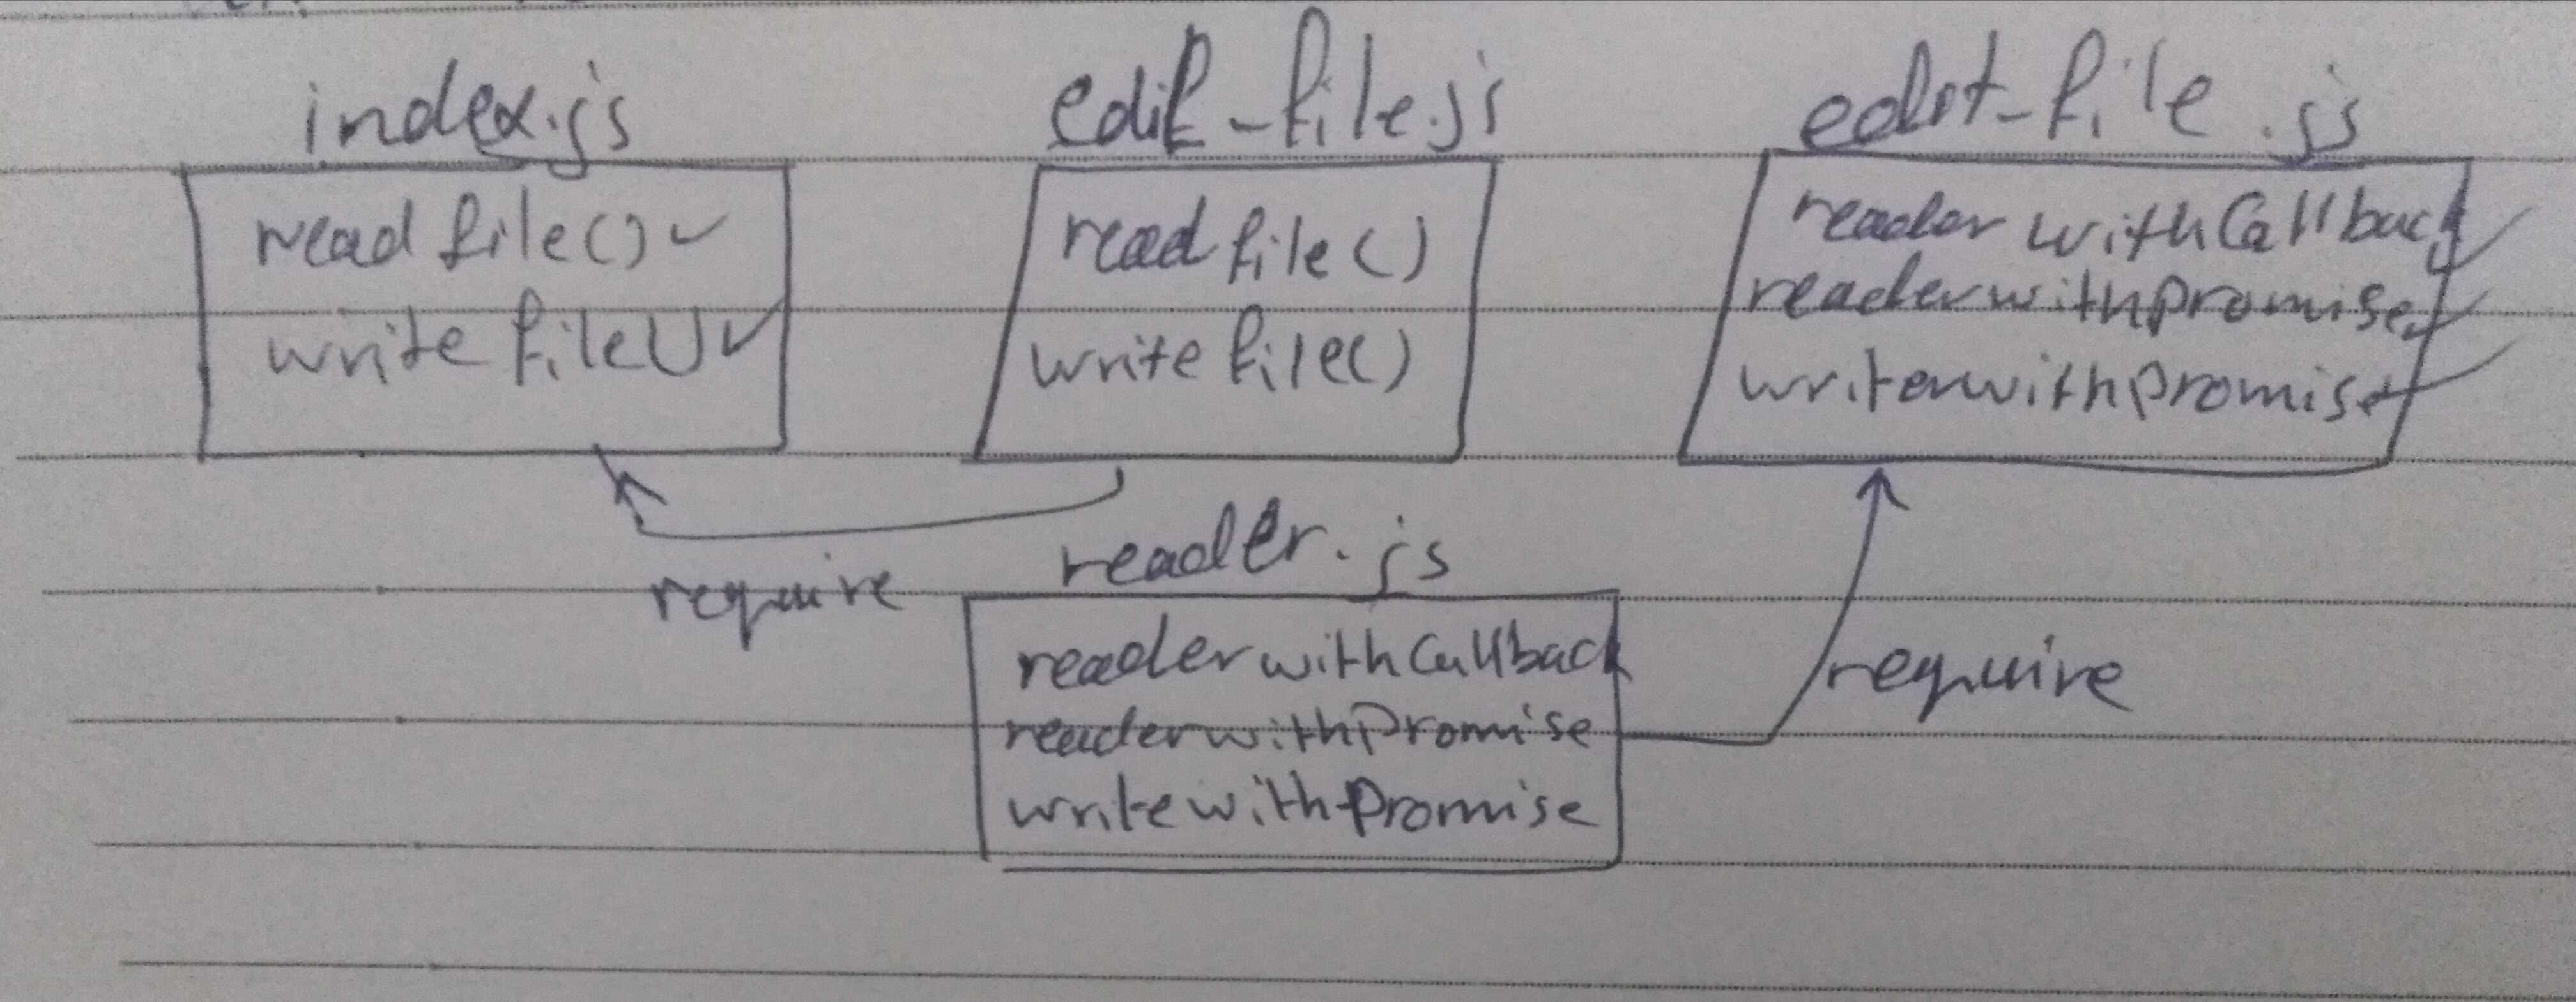 index.js
read file() ✓
write file() ✓
edit-file.js
read file()
write file()
edit-file.js
reader withCallback ✓
readerwithpromise ✓
writerwithpromise ✓
require
reader.js
readerwithCallback
readerwithPromise
writewithpromise
require